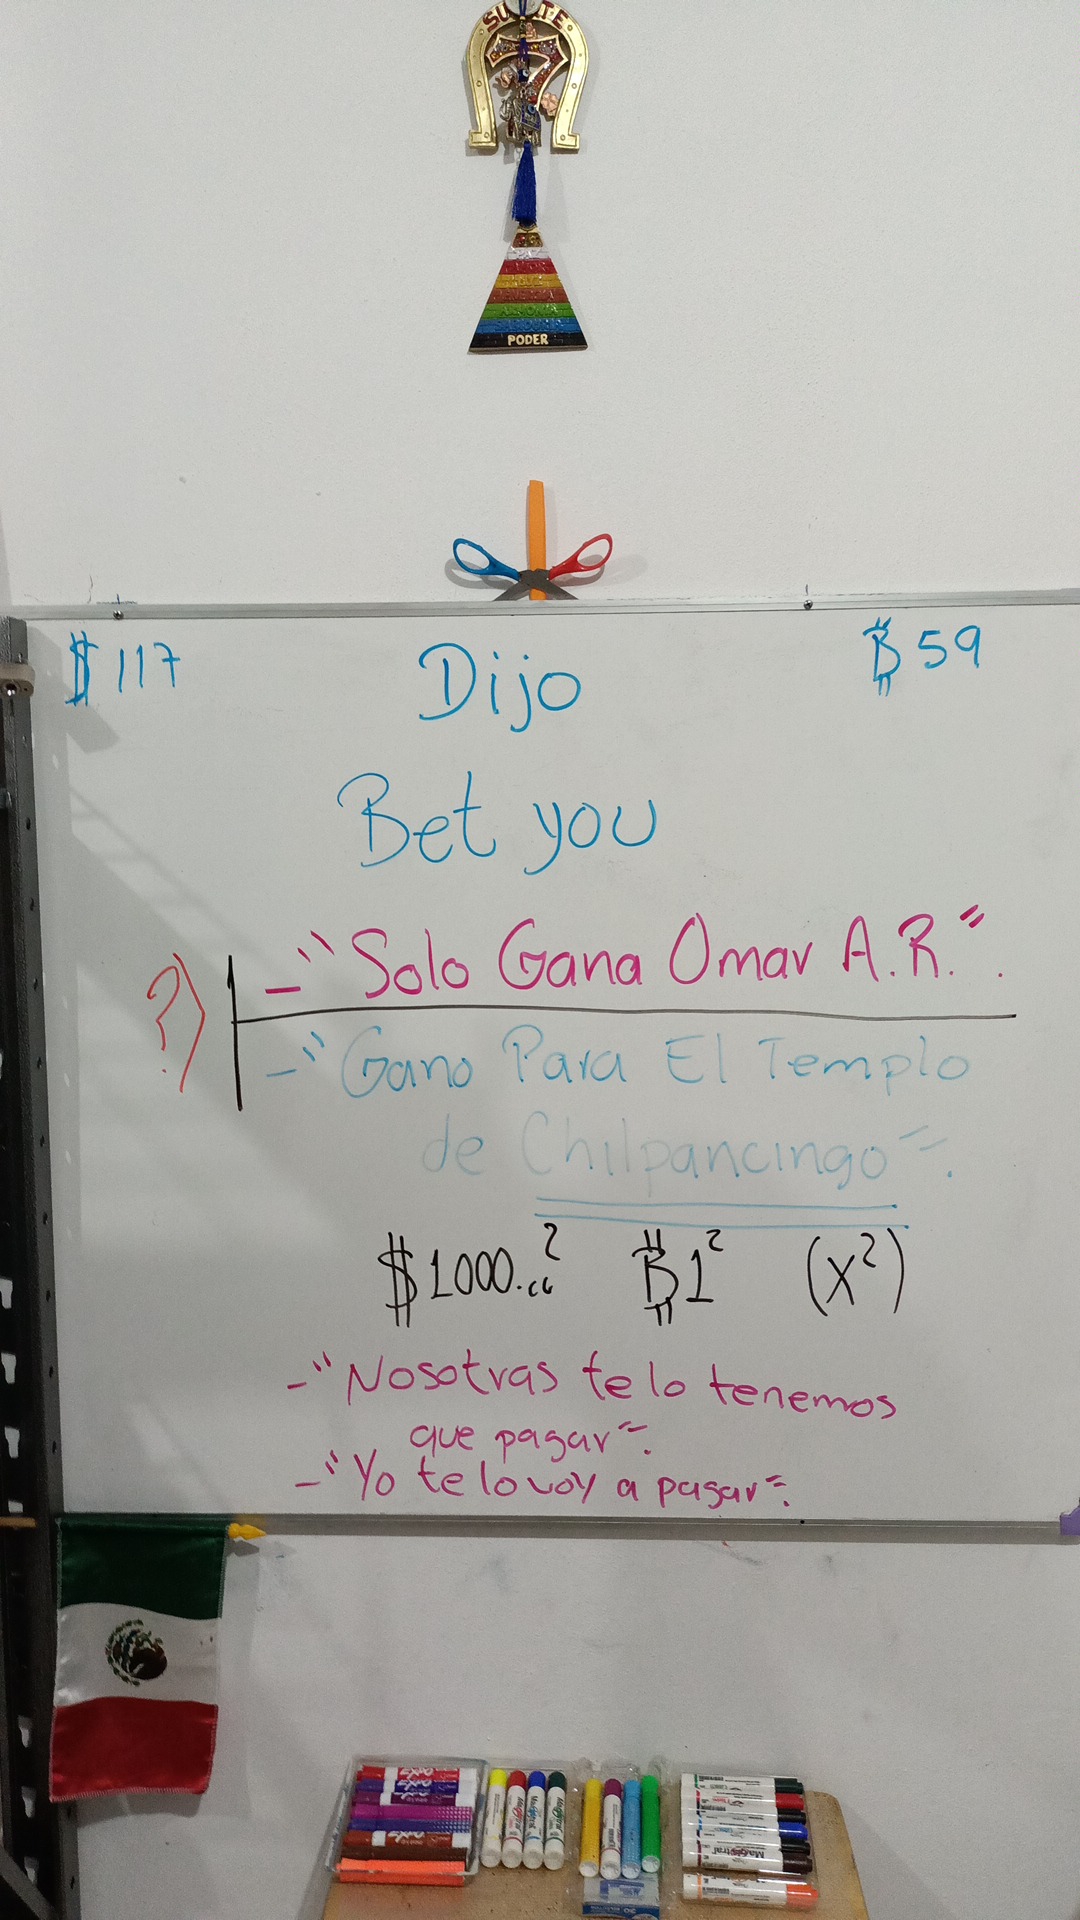 SUERTE
7
PODER
$ 117
Dijo
₿ 59
Bet you
-"Solo Gana Omar A.R.".
?)
-"Gano Para El Templo
de Chilpancingo".
$1000...² ₿1² (x²)
-"Nosotras te lo tenemos
que pagar".
-"Yo te lo voy a pagar".
Magistral